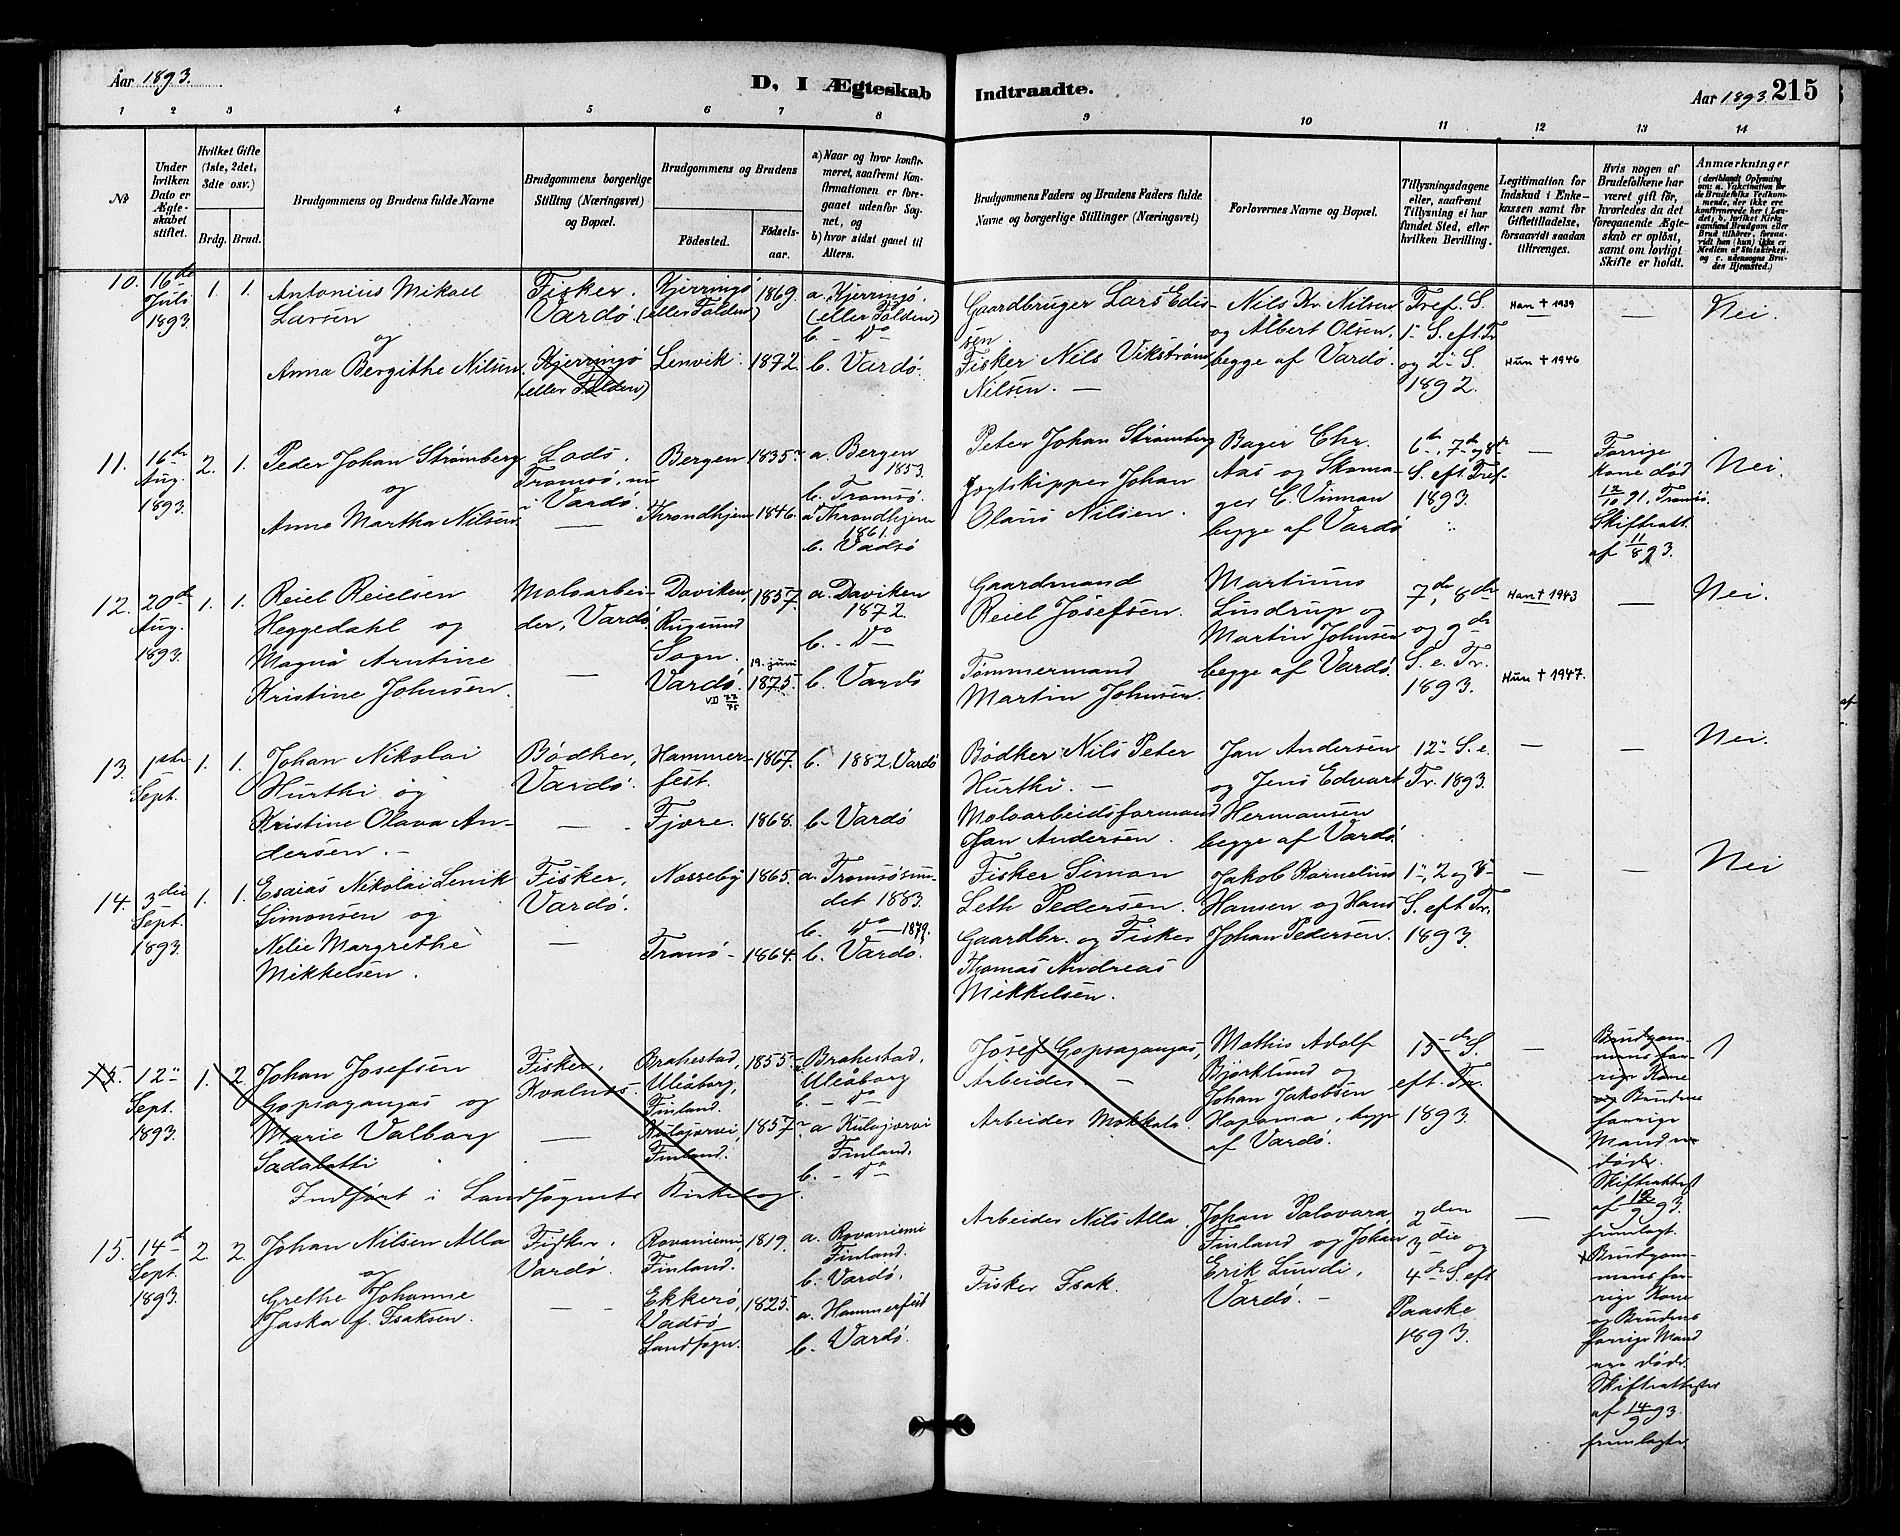 Aar 1893.
D, I Ægteskab
Indtraadte.
Aar 1893. 215
1 2 3 4 5 6 7 8 9 10 11 12 13 14
№
Under
hvilken
Dato er
Ægte-
skabet
stiftet.
Hvilket Gifte
(1ste, 2det,
3die osv.)
Brdg. Brud.
Brudgommens og Brudens fulde Navne
Brudgommens borgerlige
Stilling (Næringsvei)
og Bopæl.
Brudgommens og Brudens
Fødested.
Fødsels-
aar.
a) Naar og hvor konfir-
meret, saafremt Kon-
firmationen er fore-
gaaet udenfor Sog-
net, og
b) hvor sidst gaaet til
Alters.
Brudgommens Faders og Brudens Faders fulde
Navne og borgerlige Stillinger (Næringsvei)
Forlovernes Navne og Bopæl.
Tillysningsdagene
eller, saafremt
Tillysning ei har
fundet Sted, efter
hvilken Bevilling.
Legitimation for
Indskud i Enke-
kassen samt for
Giftetilladelse,
forsaavidt saadan
tiltrænges.
Hvis nogen af
Brudefolkene har
været gift før,
hvorledes da det
foregaaende Ægte-
skab er opløst,
samt om lovligt
Skifte er holdt.
Anmærkninger
(deriblandt Oplysning
om: a. Vakcination for
de Brudefolks Vedkom-
mende, der ikke ere
konfirmerede her i Lan-
det; b. hvilket Kirke-
samfund Brudgom eller
Brud tilhører, forsaa-
vidt han (hun) ikke er
Medlem af Statskirken,
og c. udensogns Bru-
des Hjemsted.)
10. 16de
Juli
1893.
1. 1.
Antonius Mikael
Larsen
og
Anna Bergithe Nilsen.
Fisker.
Vardø.
Kjerringø
(eller Folden)
Kjerringø
(eller Folden)
Lenvik.
1869.
1872.
a. Kjerringø.
(eller Folden)
b. - Do -
b. Vardø.
Gaardbruger Lars Edis-
sen.
Fisker Nils Vikstrøm
Nilsen. -
Nils Kr. Nilsen
og Albert Olsen.
begge af Vardø.
Tref. S.
1. S. eft. Tr.
og 2. S.
1892.
Han † 1939
Hun † 1946
-
Nei.
11. 16de
Aug.
1893.
2. 1.
Peder Johan Strømberg
og
Anne Martha Nilsen.
Lods.
Tromsø, nu
i Vardø.
-
Bergen
Throndhjem
1835.
1846.
a. Bergen
1853.
b. Tromsø.
a. Throndhjem
1861.
b. Vadsø
Peter Johan Strømberg
Jagtskipper Johan
Olaus Nilsen.
Bager Chr.
Aas og Skoma-
ger C. Vinnan
begge af Vardø
6te, 7de og 8de
S. eft Tref.
1893.
-
Forrige
Kone død
12/10 91. Tromsø.
Skifteatt.
af 11/8 93.
Nei.
12. 20de
Aug.
1893.
1. 1.
Reiel Reielsen
Heggedahl og
Magna Arntine
Kristine Johnsen.
Moloarbei-
der, Vardø.
-
Daviken,
Rugsund
Sogn.
Vardø.
1857.
19. juni
1875.
a. Daviken
1872.
b. - Do -
b. Vardø
Gaardmand
Reiel Josefsen.
Tømmermand
Martin Johnsen.
Martinus
Lindrup og
Martin Johnsen
begge af Vardø.
7de, 8de
og 9de
S. e. Tr.
1893.
Han † 1943
Hun † 1947.
-
Nei.
13. 1ste
Sept.
1. 1.
Johan Nikolai
Hurthi og
Kristine Olava An-
dersen. -
Bødker,
Vardø.
-
Hammer-
fest.
Fjære.
1867.
1868.
b. 1882. Vardø
b. Vardø
Bødker Nils Peter
Hurthi. -
Moloarbeidsformand
Jan Andersen.
Jan Andersen
og Jens Edvart
Hermansen
begge af Vardø.
12. S. e.
Tr. 1893.
-
-
Nei.
14. 3die
Sept.
1893.
1. 1.
Esaias Nikolai Lenik
Simonsen og
Nelie Margrethe
Mikkelsen.
Fisker,
Vardø.
-
Næsseby
Tranø
1865.
1864.
a. Tromsøsun-
det 1883.
b. Do - 1879.
b. Vardø.
Fisker Simon
Leth Pedersen.
Gaardbr. og Fisker
Thomas Andreas
Mikkelsen.
Jakob Kornelius
Hansen og Hans
Johan Pedersen.
1., 2 og 3.
S. eft Tr.
1893.
-
-
Nei
15. 12.
Sept.
1893.
1. 2.
Johan Josefsen
Gopsagangas og
Marie Valborg
Sadalatti
Fisker,
Kvalnes.
-
Brahestad,
Uleåborg,
Finland.
Kulajarvi,
Finland.
1855
1857
Brahestad,
Uleåborg
b. - Do -
a. Kulajarvi
Finland.
b. - Do -
Indført i Landsognets Kirkebog.
Josef Gopsagangas,
Arbeider -
Arbeider Mokkala.
Mathis Adolf
Bjørklund og
Johan Jakobsen
Hapama, begge
af Vardø.
15de S.
eft. Tr.
1893.
-
Brudgom-
mens for-
rige Kone
og Brudens
forrige
Mand er
døde.
Skifteattest
af 12/9 93.
fremlagt.
15. 14de
Sept.
1893.
2. 2.
Johan Nilsen Alla
og
Grethe Johanne
Jaska f. Isaksen.
Fisker.
Vardø.
-
Rovaniemi,
Finland.
Ekkerø,
Vadsø
Landsogn.
1819.
1825.
a. Rovaniemi
Finland.
b. Vardø.
a. Hammerfest
b. Vardø.
Arbeider Nils Alla.
Fisker Isak.
Johan Palovara,
Finland og Johan
Erik Lundi,
Vardø. -
2den
3die og
4de S. eft
Paaske
1893.
-
Brudgom-
mens for-
rige Kone
og Brudens
forrige Mand
ere døde.
Skifteattester
af 14/9 93.
fremlagte.